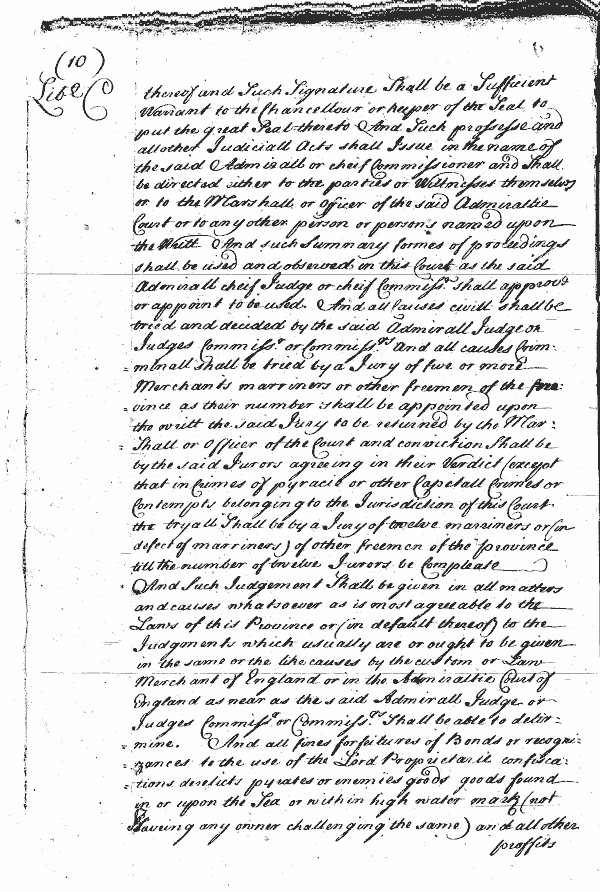 (10)
Lib C
thereof and Such Signature Shall be a Sufficient
Warrant to the Chancellour or keeper of the Seal to
put the great Seal thereto And Such professe and
all other Judiciall Acts shall Issue in the name of
the said Admirall or cheif Commissioner and Shall
be directed either to the parties or Wittnesses themselves
or to the Marshall or Officer of the said Admiraltie
Court or to any other person or persons named upon
the Writt And such Summary formes of proceedings
shall be used and observed in this Court as the said
Admirall cheif Judge or cheif Commissr. shall approve
or appoint to be used. And all Causes civill shall be
tried and decided by the said Admirall Judge or
Judges Commissr. or Commissrs. And all causes Crim=
minall shall be tried by a Jury of five or more
Merchants marriners or other freemen of the Pro=
=vince as their number shall be appointed upon
the writt the said Jury to be returned by the Mar=
=Shall or Officer of the Court and conviction Shall be
by the said Jurors agreeing in their Verdict (except
that in Crimes of pyracie or other Capitall Crimes or
Contempts belonging to the Jurisdiction of this Court
the tryall Shall be by a Jury of twelve marriners or (in
defect of marriners) of other freemen of the province
till the number of twelve Jurors be Compleate )
And Such Judgement Shall be given in all matters
and causes whatsoever as is most agreeable to the
Laws of this Province or (in default thereof) to the
Judgments which usually are or ought to be given
in the same or the like causes by the custom or Law
Merchant of England or in the Admiraltie Court of
England as near as the said Admirall Judge or
Judges Commissr. or Commissrs. Shall be able to deter=
=mine. And all fines forfeitures of Bonds or recogni=
=zances to the use of the Lord Proprietarie confisca=
=tions derelicts pyrates or enemies goods goods found
in or upon the Sea or within high water mark (not
haveing any owner challenging the same) and all other
proffits